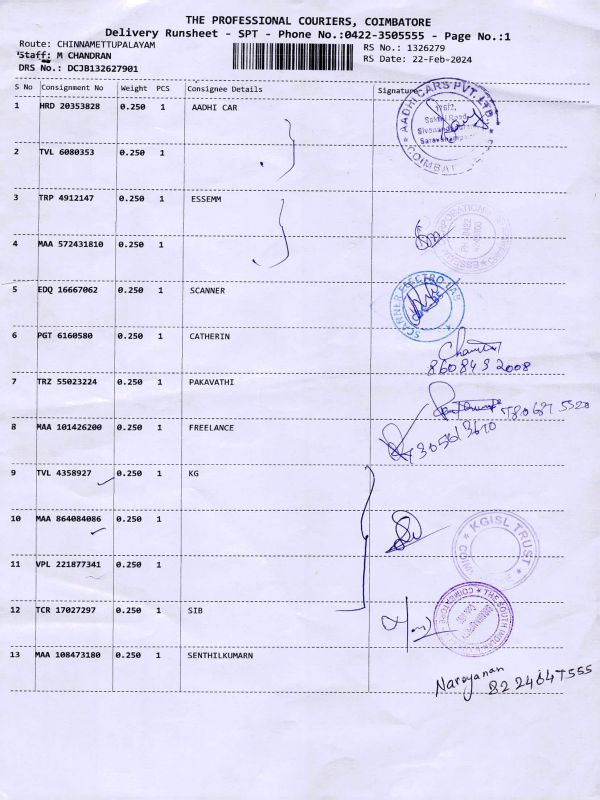 THE PROFESSIONAL COURIERS, COIMBATORE
Delivery Runsheet - SPT - Phone No.:0422-3505555 - Page No.:1
Route: CHINNAMETTUPALAYAM RS No.: 1326279
Staff: M CHANDRAN RS Date: 22-Feb-2024
DRS No.: DCJB132627901
S No Consignment No Weight PCS Consignee Details Signature
1 HRD 20353828 0.250 1 AADHI CAR
AADHI CARS PVT. LTD.
176/2,
COIMBAT
2 TVL 6080353 0.250 1
3 TRP 4912147 0.250 1 ESSEMM
4 MAA 572431810 0.250 1
5 EDQ 16667062 0.250 1 SCANNER
SCANNER ELECTRO LAB
6 PGT 6160580 0.250 1 CATHERIN
8608492008
7 TRZ 55023224 0.250 1 PAKAVATHI
8 MAA 101426200 0.250 1 FREELANCE
9 TVL 4358927 0.250 1 KG
10 MAA 864084086 0.250 1
KGISL TRUST
11 VPL 221877341 0.250 1
12 TCR 17027297 0.250 1 SIB
THE SOUTH INDIAN
COIMBATORE
13 MAA 108473180 0.250 1 SENTHILKUMARN
Narayanan
8224647555